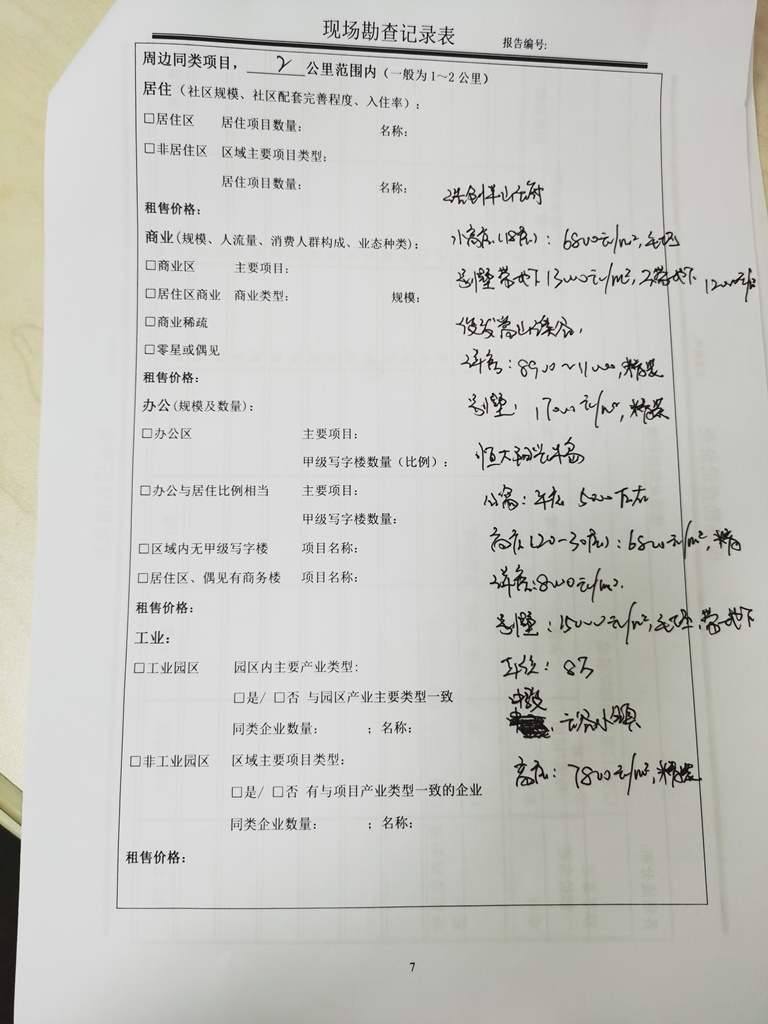 现场勘查记录表
报告编号:
周边同类项目，2公里范围内（一般为1～2公里）
居住（社区规模、社区配套完善程度、入住率）:
□居住区 居住项目数量: 名称:
□非居住区 区域主要项目类型:
居住项目数量: 名称:
租售价格:
商业(规模、人流量、消费人群构成、业态种类): 小高层(18层): 6800元/m²,毛坯
□商业区 主要项目: 别墅带地下13000元/m²,不带地下12000元/m²
□居住区商业 商业类型: 规模:
□商业稀疏
□零星或偶见 洋房: 8900～11000,精装
租售价格:
办公(规模及数量): 别墅: 17000元/m²,精装
□办公区 主要项目:
甲级写字楼数量（比例）: 恒大
□办公与居住比例相当 主要项目: 公寓: 5000左右
甲级写字楼数量:
□区域内无甲级写字楼 项目名称: 高层(20-30层): 6800元/m²,精
□居住区、偶见有商务楼 项目名称: 洋房:8000元/m².
租售价格: 别墅: 15000元/m²,毛坯,带地下
工业:
□工业园区 园区内主要产业类型: 车位: 8万
□是/ □否 与园区产业主要类型一致 中骏
同类企业数量: ；名称: 云谷小镇
□非工业园区 区域主要项目类型: 高层: 7800元/m²,精装
□是/ □否 有与项目产业类型一致的企业
同类企业数量: ；名称:
租售价格:
7